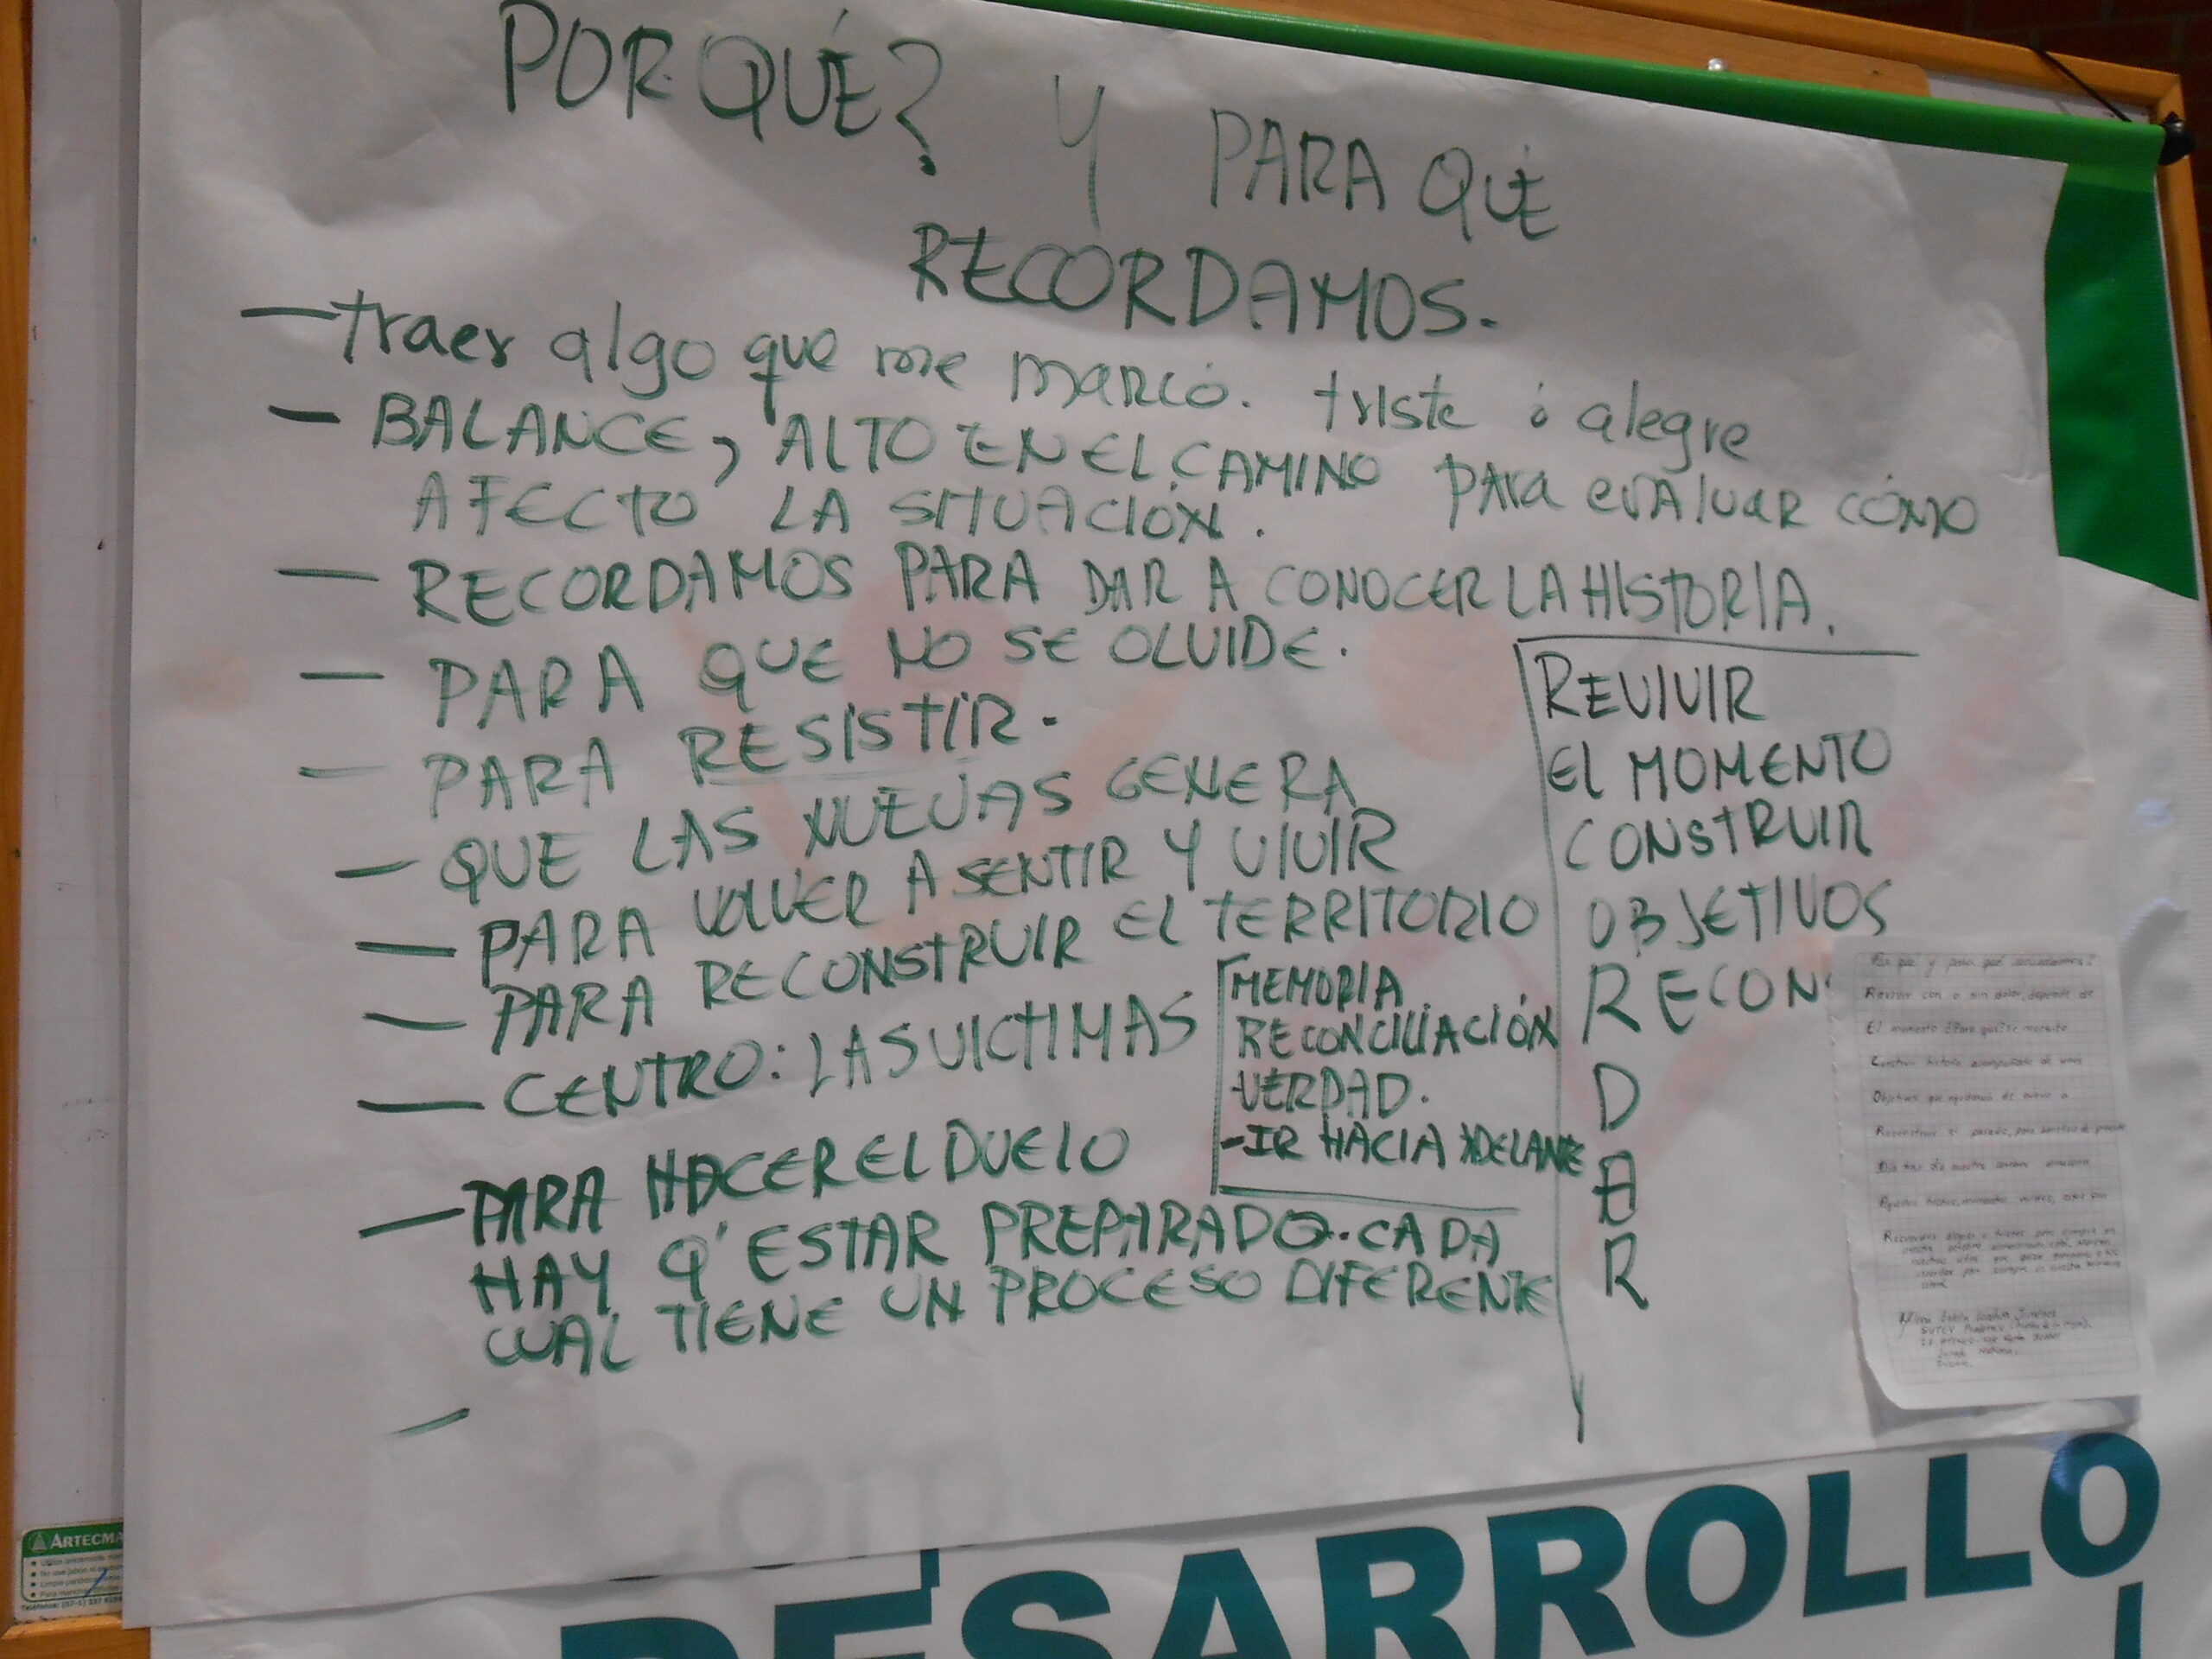 POR QUÉ? Y PARA QUÉ
RECORDAMOS.
— traer algo que me marcó. triste ó alegre
— BALANCE, ALTO EN EL CAMINO para evaluar cómo
AFECTO LA SITUACIÓN.
— RECORDAMOS PARA DAR A CONOCER LA HISTORIA.
— PARA QUE NO SE OLVIDE.
— PARA RESISTIR.
— QUE LAS NUEVAS GENERA
— PARA VOLVER A SENTIR Y VIVIR
— PARA RECONSTRUIR EL TERRITORIO
— CENTRO: LAS VICTIMAS
MEMORIA
RECONCILIACIÓN
-VERDAD.
-IR HACIA ADELANTE
— PARA HACER EL DUELO
HAY Q' ESTAR PREPARADO. CADA
CUAL TIENE UN PROCESO DIFERENTE
—
REVIVIR
EL MOMENTO
CONSTRUIR
OBJETIVOS
RECONS
D
A
R
Revivir con o sin dolor, depende de
El momento ¿Para qué? se necesita
Construir historia acompañada de unos
Objetivos que
Reconstruir el pasado, para
DESARROLLO
ARTECMA